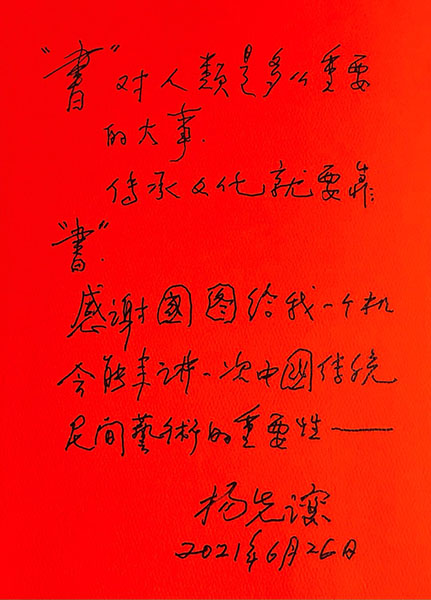 “書”对人類是多么重要
的大事.
传承文化就要靠
“書”.
感谢國图给我一个机
会能来讲一次中國传统
民间藝術的重要性——
杨先讓
2021年6月26日